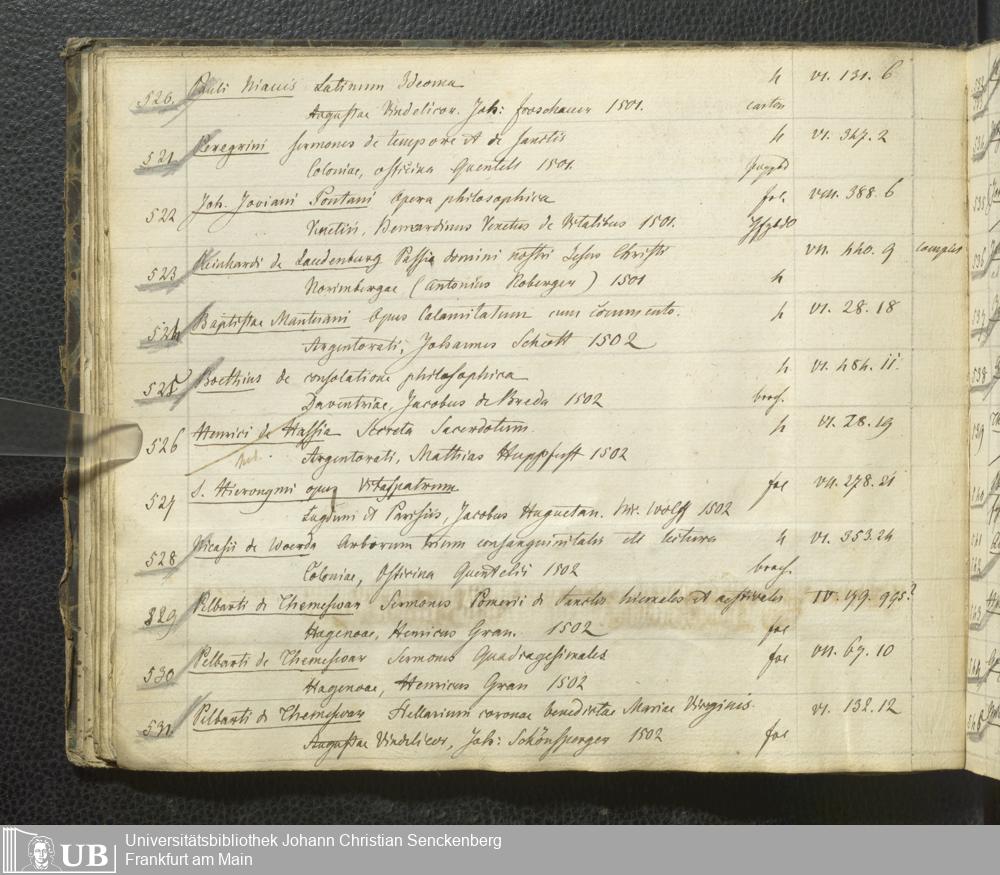 520 Pauli Niavis Latinum Ideoma 4 VI. 131. 6
Augustae Vindelicor. Joh: froschauer 1501. carton
521 Peregrini Sermones de tempore et de Sanctis 4 VI. 347. 2
Coloniae, officina Quentell 1501.
522 Joh. Joviani Pontani Opera philosophica fol. VIII. 388. 6
Venetiis, Bernardinus Venetus de Vitalibus 1501.
523 Reinhardi de Laudenburg Passia domini nostri Jesus Christi VII. 440. 9 complet
Norimbergae (Antonius Koberger) 1501 4
524 Baptistae Mantuani Opus Calamitatum cum commento. 4 VI. 28. 18
Argentorati, Johannes Schott 1502
525 Boethius de consolatione philosophica 4 VI. 484. 11.
Daventriae, Jacobus de Breda 1502 broch.
526 Henrici de Hassia Secreta Sacerdotum. 4 VI. 28. 19
Argentorati, Mathias Huppfuff 1502
527 S. Hieronymi opus Vitaspatrum foe VII. 278. 21
Lugduni et Parisiis, Jacobus Huguetan. Nic. Wolff 1502
528 Nicasii de Woerda Arborum trium consanguinitatis etc lectura 4 VI. 353. 24
Coloniae, Officina Quentelii 1502 broch.
529 Pelbarti de Themeswar Sermones Pomerii de Sanctis hiemales et aestivales IV. 179. 995?
Hagenoae, Henricus Gran. 1502 foe
530 Pelbarti de Themeswar Sermones Quadragesimales foe VII. 67. 10
Hagenoae, Henricus Gran 1502
531 Pelbarti de Themeswar Stellarium coronae benedictae Mariae Virginis. VI. 132. 12
Augustae Vindelicor, Joh: Schönsperger 1502 foe
UB Universitätsbibliothek Johann Christian Senckenberg
Frankfurt am Main